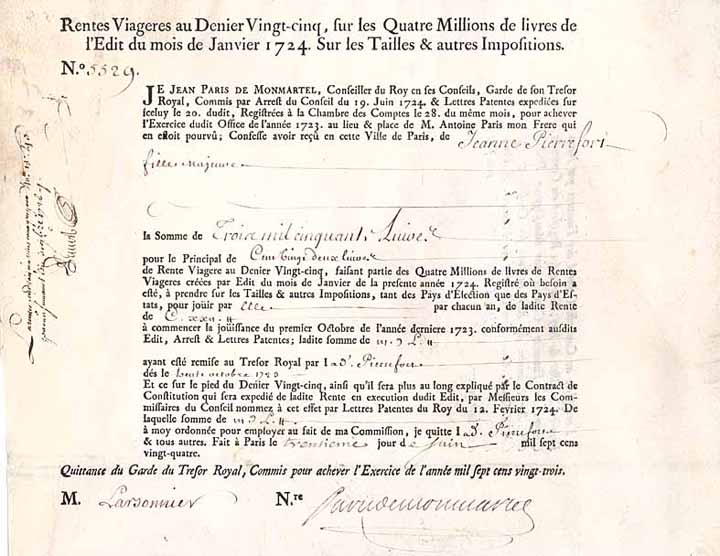 Rentes Viageres au Denier Vingt-cinq, sur les Quatre Millions de livres de
l'Edit du mois de Janvier 1724. Sur les Tailles & autres Impositions.
N.o 5529.
JE JEAN PARIS DE MONMARTEL, Conseiller du Roy en ses Conseils, Garde de son Tresor
Royal, Commis par Arrest du Conseil du 19. Juin 1724. & Lettres Patentes expediées sur
iceluy le 20. dudit, Registrées à la Chambre des Comptes le 28. du même mois, pour achever
l'Exercice dudit Office de l'année 1723. au lieu & place de M. Antoine Paris mon Frere qui
en estoit pourvû; Confesse avoir reçû en cette Ville de Paris, de Jeanne Pierrefort
fille Majeure
la Somme de Trois mil cinquante Livres
pour le Principal de Cent vingt deux livres
de Rente Viagere au Denier Vingt-cinq, faisant partie des Quatre Millions de livres de Rentes
Viageres créées par Edit du mois de Janvier de la presente année 1724. Registré où besoin a
esté, à prendre sur les Tailles & autres Impositions, tant des Pays d'Election que des Pays d'Es-
tats, pour joüir par Elle par chacun an, de ladite Rente
de
à commencer la joüissance du premier Octobre de l'année derniere 1723. conformément ausdits
Edit, Arrest & Lettres Patentes; ladite somme de
ayant esté remise au Tresor Royal par lad. Pierrefort
dés le trente octobre 1723
Et ce sur le pied du Denier Vingt-cinq, ainsi qu'il sera plus au long expliqué par le Contract de
Constitution qui sera expedié de ladite Rente en execution dudit Edit, par Messieurs les Com-
missaires du Conseil nommez à cet effet par Lettres Patentes du Roy du 12. Fevrier 1724. De
laquelle somme de
à moy ordonnée pour employer au fait de ma Commission, je quitte lad. Pierrefort
& tous autres. Fait à Paris le trentieme jour de Juin mil sept cens
vingt-quatre.
Quittance du Garde du Tresor Royal, Commis pour achever l'Exercice de l'année mil sept cens vingt-trois.
M. Larsonnier N.re Parisdemonmartel